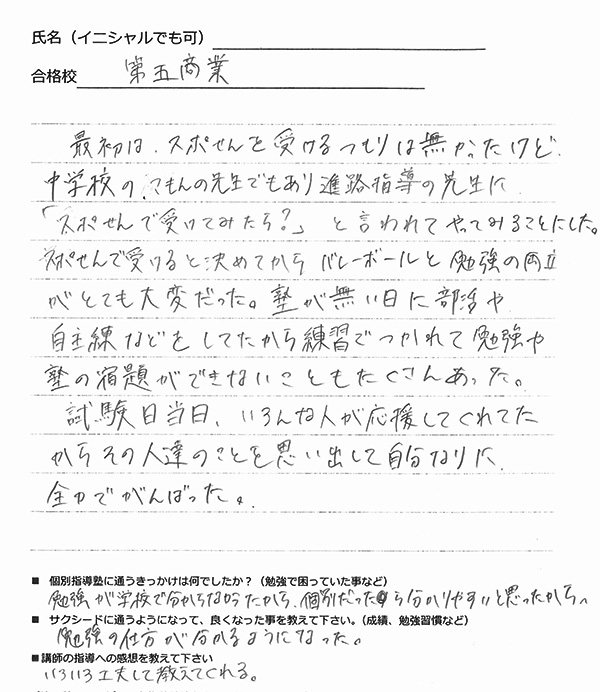 氏名（イニシャルでも可）
合格校 第五商業
最初は、スポせんを受けるつもりは無かったけど、
中学校の、こもんの先生でもあり進路指導の先生に
「スポせんで受けてみたら?」と言われてやってみることにした。
スポせんで受けると決めてからバレーボールと勉強の両立
がとても大変だった。塾が無い日に部活や
自主練などをしてたから練習でつかれて勉強や
塾の宿題ができないこともたくさんあった。
試験日当日、いろんな人が応援してくれてた
からその人達のことを思い出して自分なりに
全力でがんばった。
■ 個別指導塾に通うきっかけは何でしたか？（勉強で困っていた事など）
勉強が学校で分からなかったから、個別だったら分かりやすいと思ったから。
■ サクシードに通うようになって、良くなった事を教えて下さい。（成績、勉強習慣など）
勉強の仕方が分かるようになった。
■講師の指導への感想を教えて下さい
いろいろ工夫して教えてくれる。